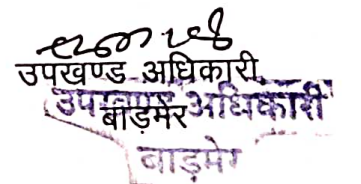 उपखण्ड अधिकारी
बाड़मेर
उपखण्ड अधिकारी
बाड़मेर